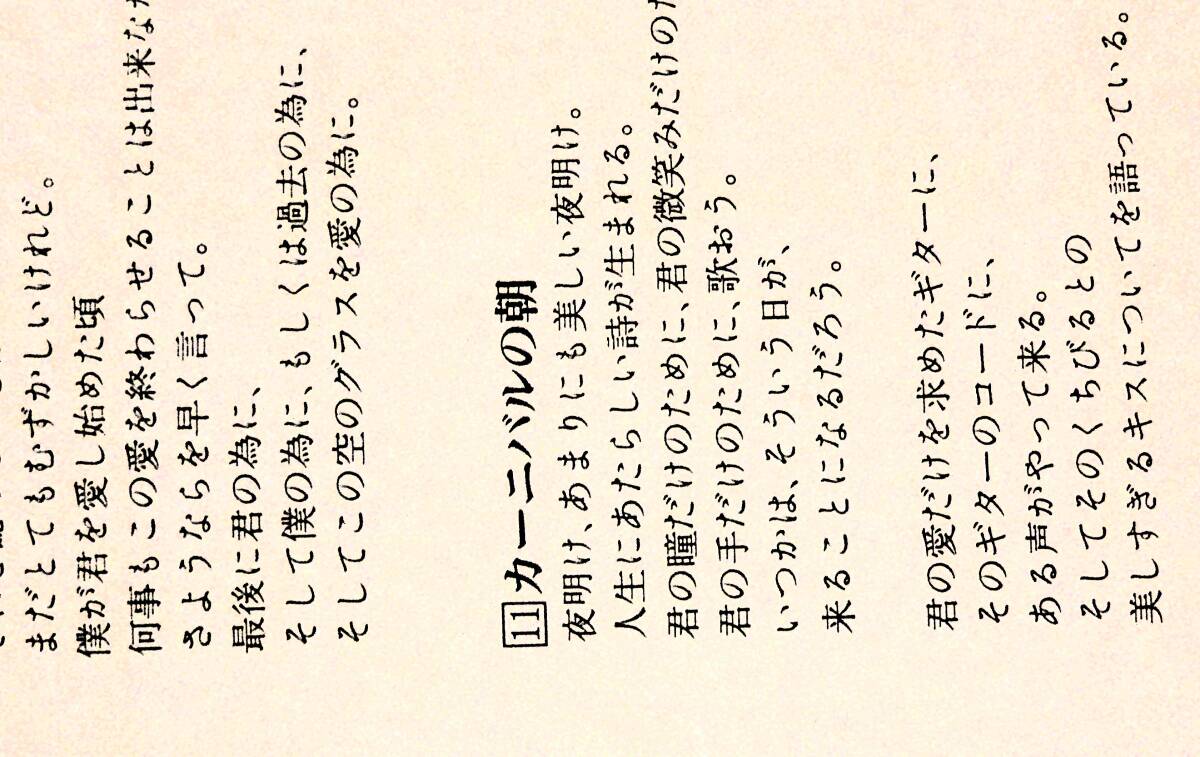 まだとてもむずかしいけれど。
僕が君を愛し始めた頃
何事もこの愛を終わらせることは出来な
さようならを早く言って。
最後に君の為に、
そして僕の為に、もしくは過去の為に、
そしてこの空のグラスを愛の為に。
11 カーニバルの朝
夜明け、あまりにも美しい夜明け。
人生にあたらしい詩が生まれる。
君の瞳だけのために、君の微笑みだけの
君の手だけのために、歌おう。
いつかは、そういう日が、
来ることになるだろう。
君の愛だけを求めたギターに、
そのギターのコードに、
ある声がやって来る。
そしてそのくちびるとの
美しすぎるキスについてを語っている。